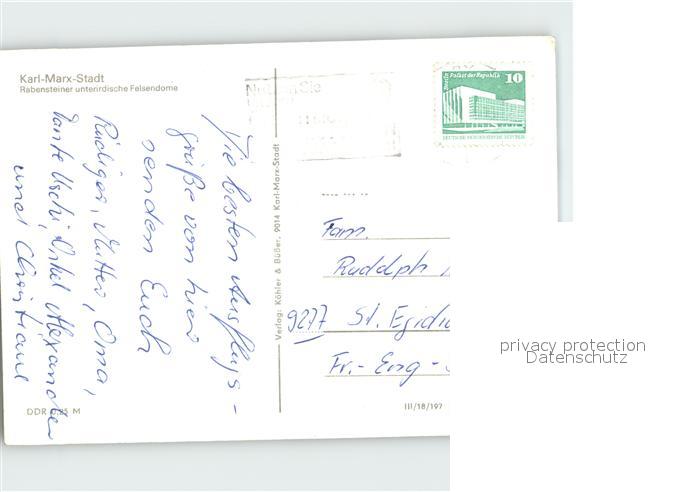 Karl-Marx-Stadt
Rabensteiner unterirdische Felsendome
Die besten Ausflugs-
grüße von hier
senden Euch
Rüdiger, Mutter, Oma,
Tante Uschi, Onkel Alexander
und Christiane
DDR 0,25 M
Verlag: Köhler & Büßer, 9014 Karl-Marx-Stadt
Berlin Palast der Republik
10
DEUTSCHE DEMOKRATISCHE REPUBLIK
Fam.
Rudolph
9277 St. Egidi
Fr.-Eng-
III/18/197
privacy protection
Datenschutz